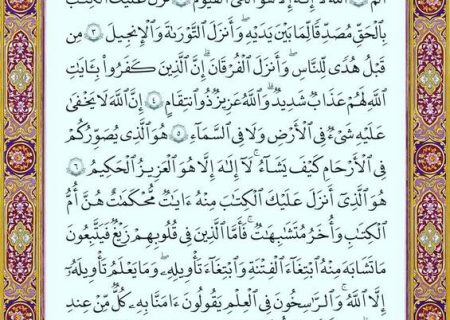 الٓمٓ ۝١ ٱللَّهُ لَآ إِلَٰهَ إِلَّا هُوَ ٱلْحَىُّ ٱلْقَيُّومُ ۝٢ نَزَّلَ عَلَيْكَ ٱلْكِتَٰبَ
بِٱلْحَقِّ مُصَدِّقًا لِّمَا بَيْنَ يَدَيْهِ وَأَنزَلَ ٱلتَّوْرَىٰةَ وَٱلْإِنجِيلَ ۝٣ مِن
قَبْلُ هُدًى لِّلنَّاسِ وَأَنزَلَ ٱلْفُرْقَانَ ۗ إِنَّ ٱلَّذِينَ كَفَرُوا۟ بِـَٔايَٰتِ
ٱللَّهِ لَهُمْ عَذَابٌ شَدِيدٌ ۗ وَٱللَّهُ عَزِيزٌ ذُو ٱنتِقَامٍ ۝٤ إِنَّ ٱللَّهَ لَا يَخْفَىٰ
عَلَيْهِ شَىْءٌ فِى ٱلْأَرْضِ وَلَا فِى ٱلسَّمَآءِ ۝٥ هُوَ ٱلَّذِى يُصَوِّرُكُمْ
فِى ٱلْأَرْحَامِ كَيْفَ يَشَآءُ ۚ لَآ إِلَٰهَ إِلَّا هُوَ ٱلْعَزِيزُ ٱلْحَكِيمُ ۝٦
هُوَ ٱلَّذِىٓ أَنزَلَ عَلَيْكَ ٱلْكِتَٰبَ مِنْهُ ءَايَٰتٌ مُّحْكَمَٰتٌ هُنَّ أُمُّ
ٱلْكِتَٰبِ وَأُخَرُ مُتَشَٰبِهَٰتٌ ۖ فَأَمَّا ٱلَّذِينَ فِى قُلُوبِهِمْ زَيْغٌ فَيَتَّبِعُونَ
مَا تَشَٰبَهَ مِنْهُ ٱبْتِغَآءَ ٱلْفِتْنَةِ وَٱبْتِغَآءَ تَأْوِيلِهِۦ ۗ وَمَا يَعْلَمُ تَأْوِيلَهُۥٓ
إِلَّا ٱللَّهُ ۗ وَٱلرَّٰسِخُونَ فِى ٱلْعِلْمِ يَقُولُونَ ءَامَنَّا بِهِۦ كُلٌّ مِّنْ عِندِ